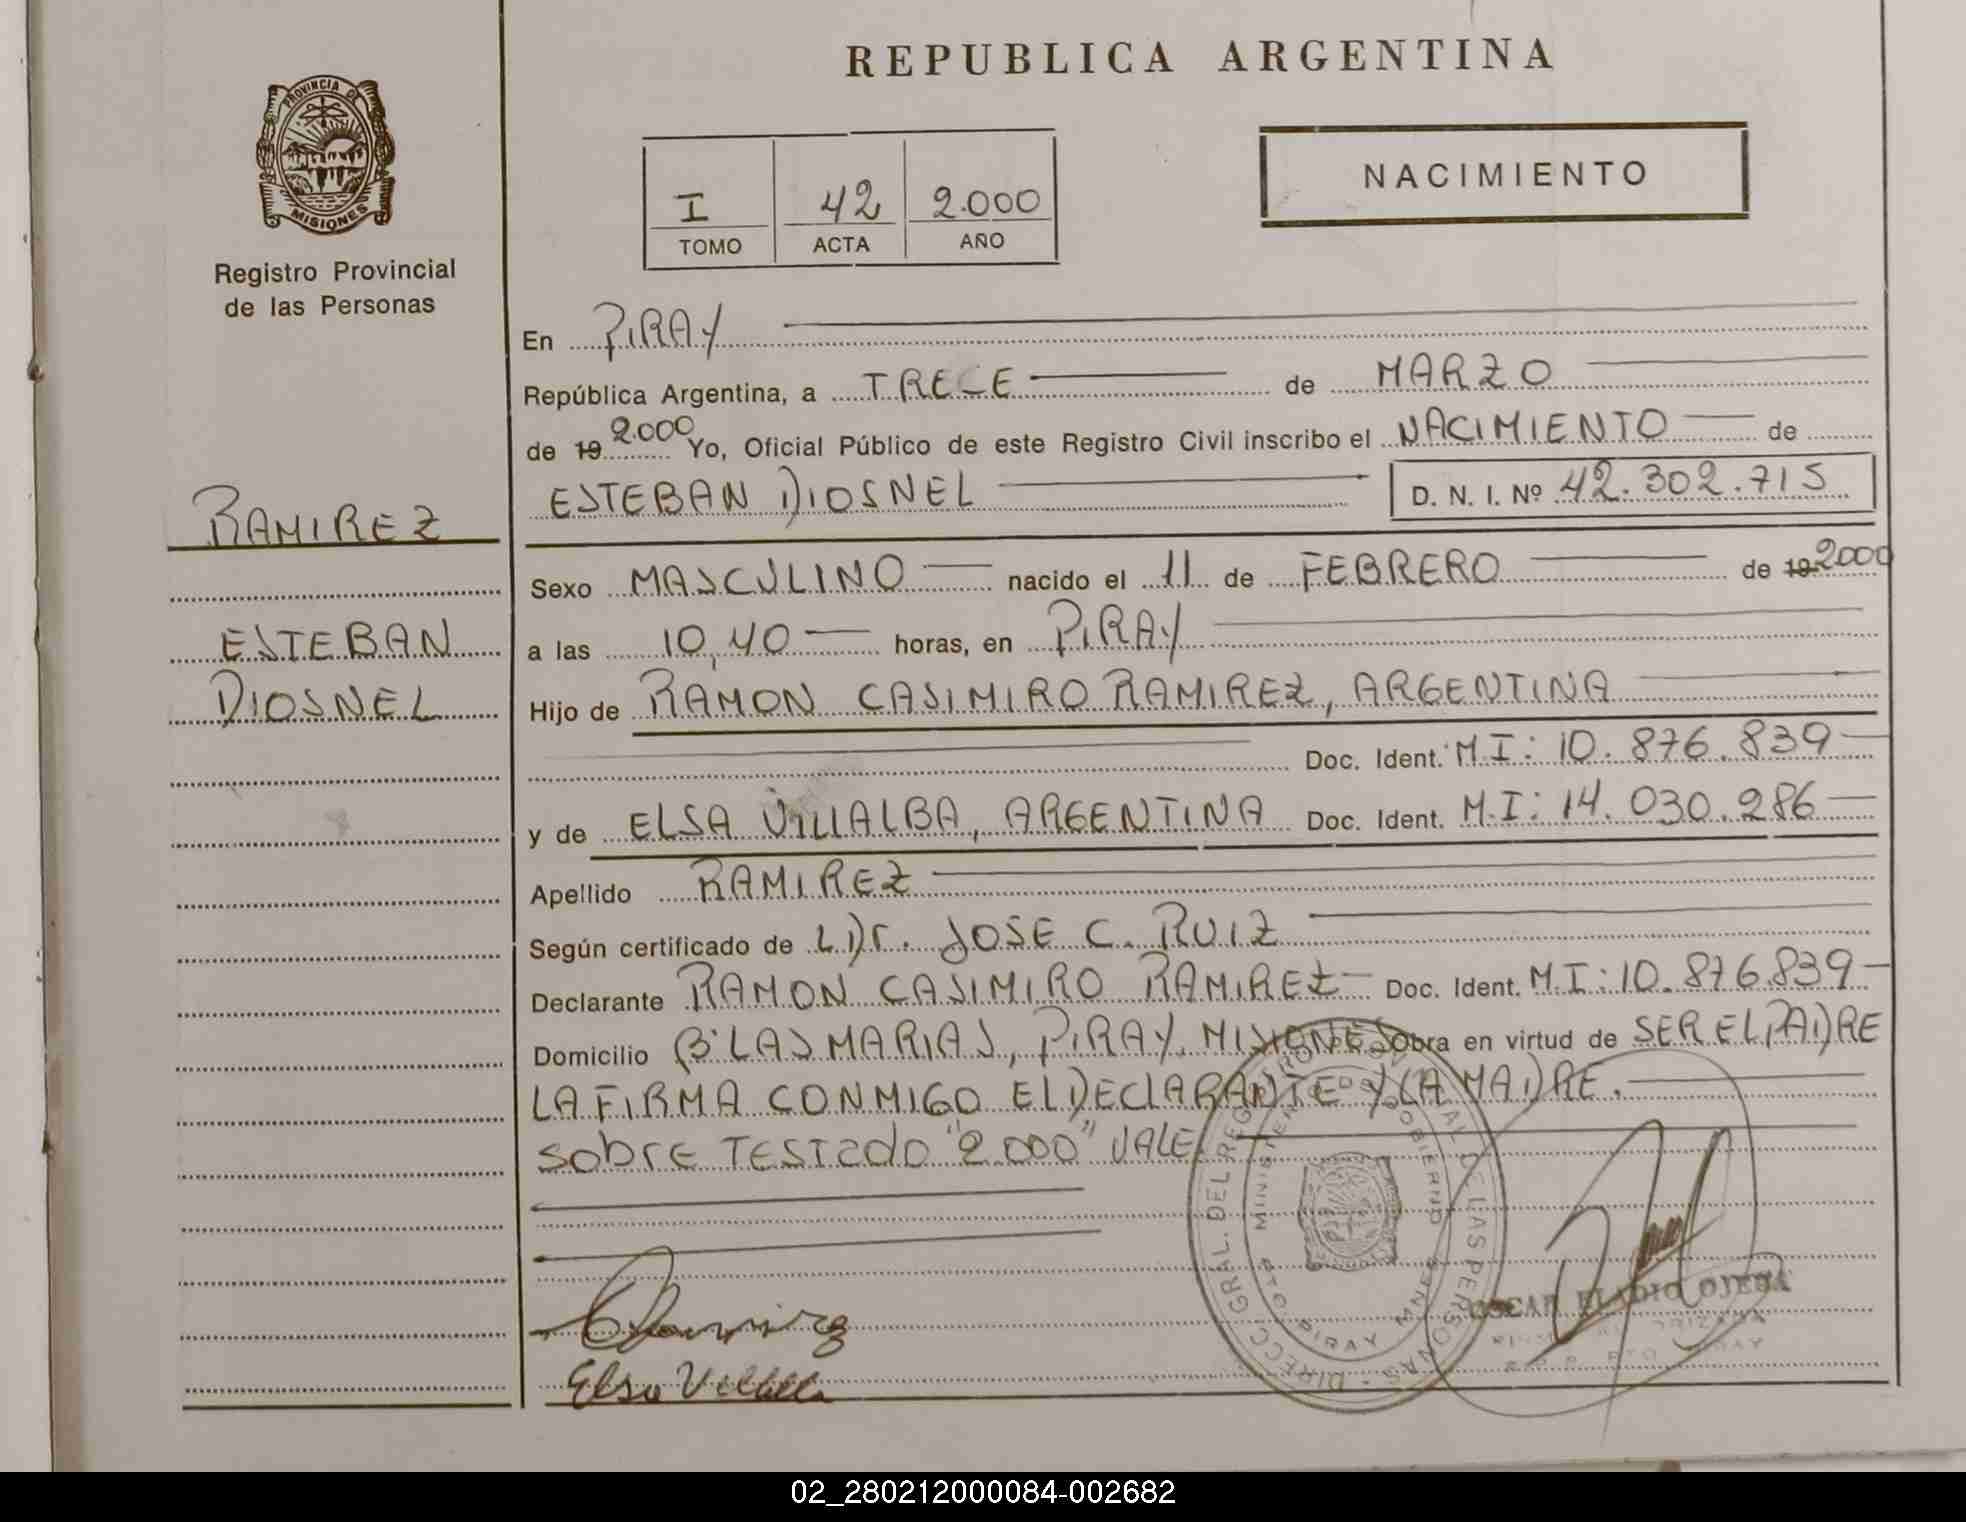 REPUBLICA ARGENTINA
PROVINCIA DE
MISIONES
Registro Provincial
de las Personas
I 42 2.000
TOMO ACTA AÑO
NACIMIENTO
RAMIREZ
ESTEBAN
DIOSNEL
En PIRAY
República Argentina, a TRECE de MARZO
de 19 2.000 Yo, Oficial Público de este Registro Civil inscribo el NACIMIENTO de
ESTEBAN DIOSNEL D. N. I. Nº 42.302.715
Sexo MASCULINO nacido el 11 de FEBRERO de 19 2000
a las 10,40 horas, en PIRAY
Hijo de RAMON CASIMIRO RAMIREZ, ARGENTINA
Doc. Ident. M.I: 10.876.839
y de ELSA VILLALBA, ARGENTINA Doc. Ident. M.I: 14.030.286
Apellido RAMIREZ
Según certificado de Dr. JOSE C. RUIZ
Declarante RAMON CASIMIRO RAMIREZ Doc. Ident. M.I: 10.876.839
Domicilio Bº LAS MARIAS, PIRAY, MISIONES Obra en virtud de SER EL PADRE
LA FIRMA CONMIGO EL DECLARANTE Y LA MADRE.
SObrE TESTado "2.000" VALE
DIRECC. GRAL. DEL REGISTRO DE LAS PERSONAS
MINISTERIO DE GOBIERNO
PIRAY MNES
Ramirez
Elsa Villalba
OSCAR ELADIO OJEDA
02_280212000084-002682